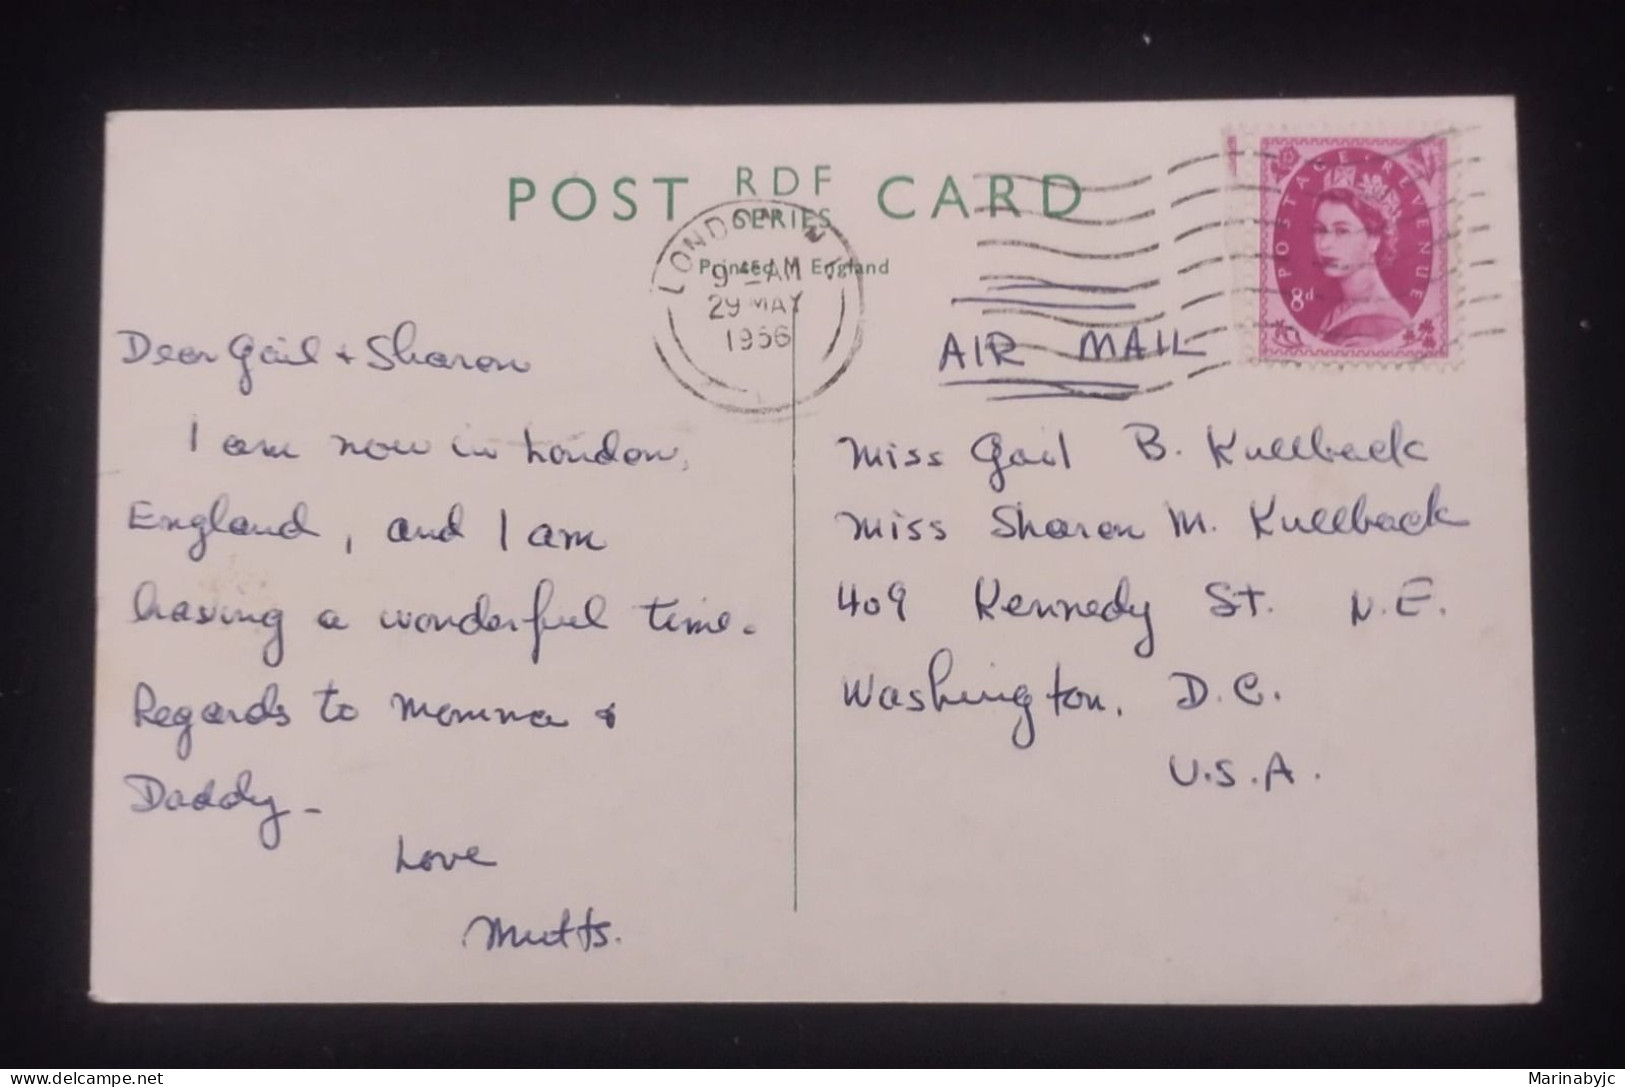 POST RDF CARD
SERIES
Printed in England
LONDON
9 45 AM
29 MAY
1956
POSTAGE REVENUE
8d
AIR MAIL
Dear Gail + Sharon
I am now in London,
England, and I am
having a wonderful time.
Regards to Momma &
Daddy -
Love
Mutts.
Miss Gail B. Kullback
Miss Sharon M. Kullback
409 Kennedy St. N.E.
Washington, D.C.
U.S.A.
Marinabyjc